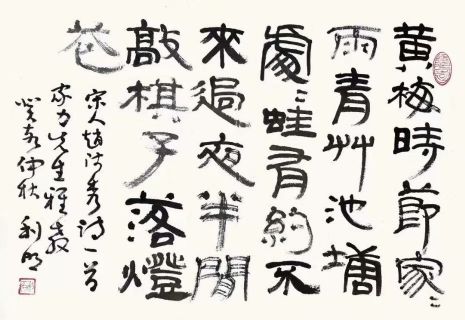 黄梅時節家〻
雨青艸池塘
處〻蛙有約不
來過夜半閒
敲棋子落燈
花
宋人趙師秀詩一首
家力先生雅教
仲秋 利明